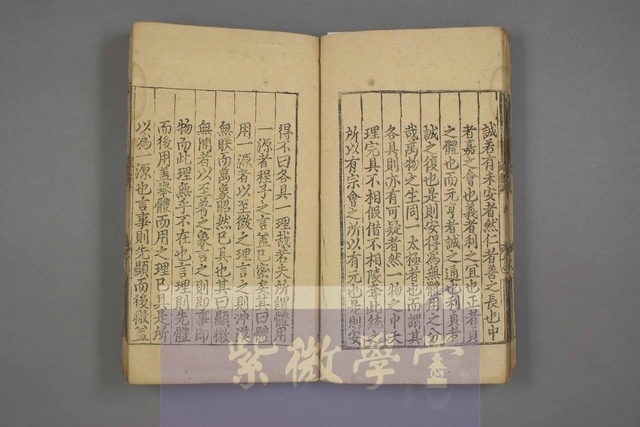 誠若有未安者然仁者善之長也中
者嘉之會也義者利之宜也正者貞
之體也而元亨者誠之通也利貞者
誠之復也是則安得為無體用之分
哉萬物之生同一太極者也而謂其
各具則亦有可疑者然一物之中天
理完具不相假借不相陵奪此統之
所以有宗會之所以有元也是則安
得不曰各具一理哉若夫所謂體用
一源者程子之言盖已密矣其曰體
用一源者以至微之理言之則沖漠
無朕而萬象昭然已具也其曰顯微
無間者以至著之象言之則即事即
物而此理無乎不在也言理則先體
而後用盖舉體而用之理已具是所
以為一源也言事則先顯而後微盖
紫微學堂